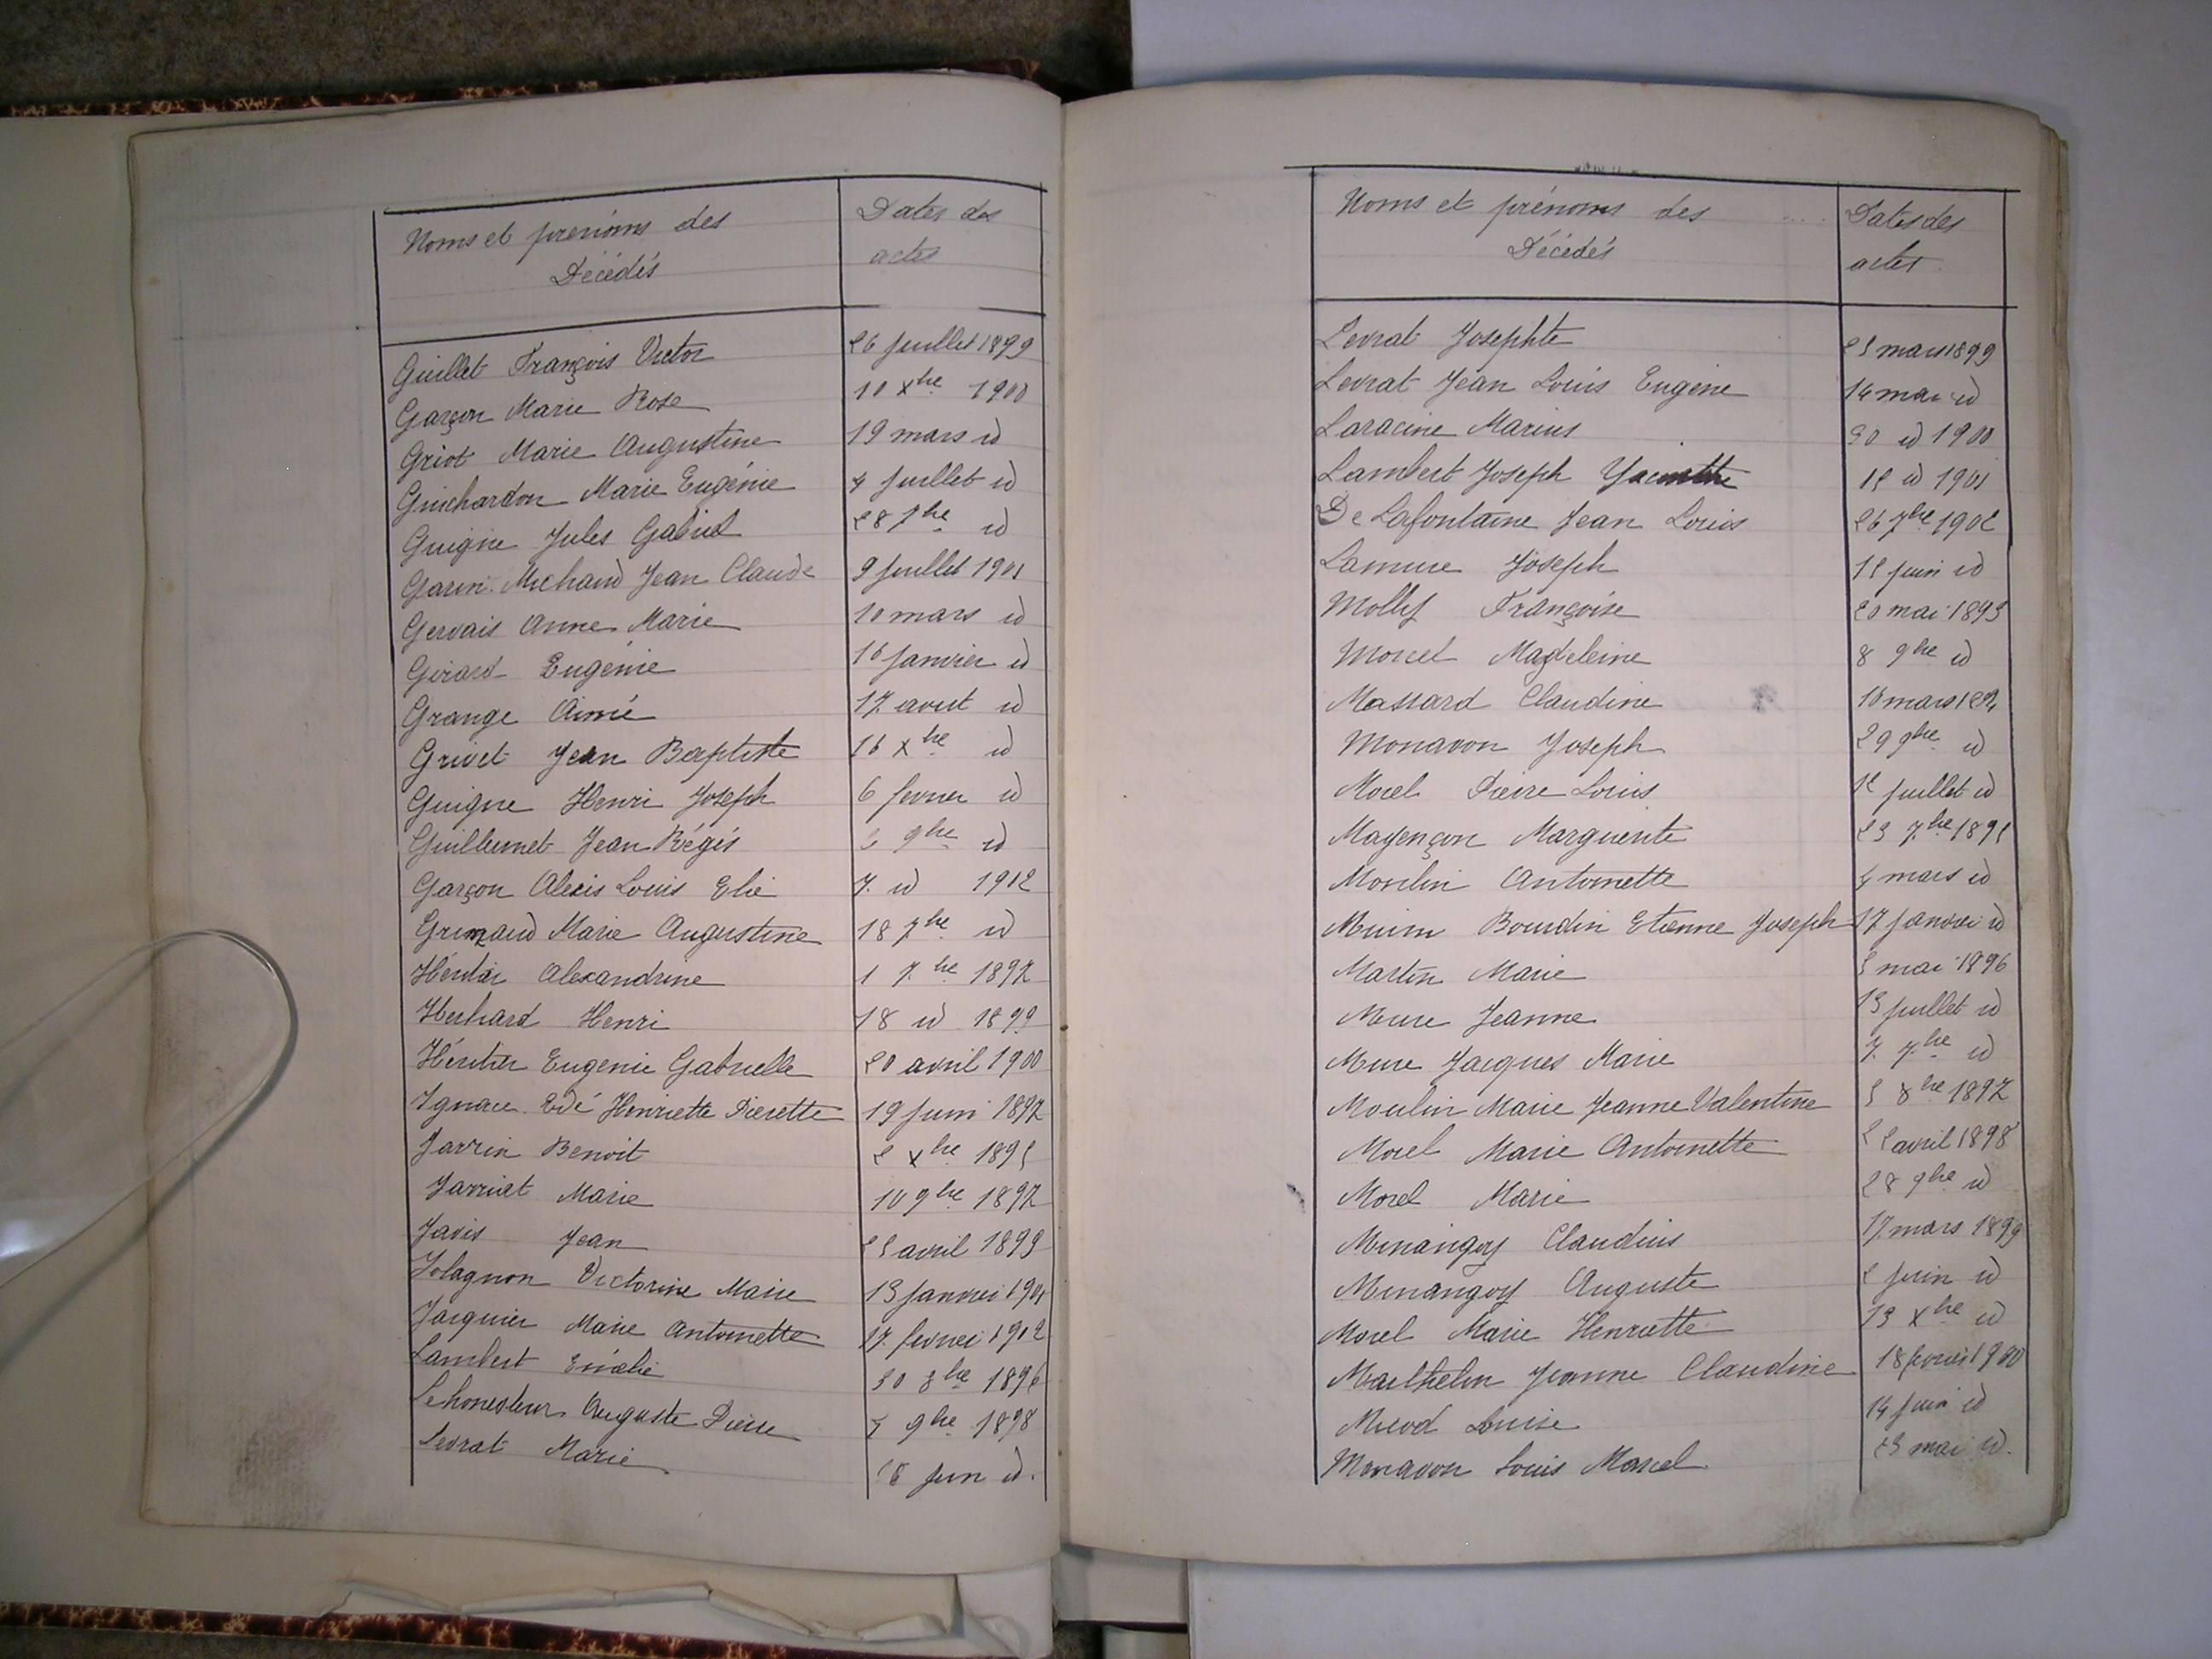 Noms et prénoms des
Décédés
Dates des
actes
Guillet François Victor 26 juillet 1899
Garçon Marie Rose 10 Xbre 1900
Griot Marie Augustine 19 mars id
Guichardon Marie Eugénie 4 juillet id
Guigne Jules Gabriel 28 7bre id
Garin Michaud Jean Claude 9 juillet 1901
Gervais Anne Marie 10 mars id
Girard Eugénie 16 janvier id
Grange Aimé 17 aout id
Grivet Jean Baptiste 16 Xbre id
Guigne Henri Joseph 6 fevrier id
Guillermet Jean Régis 9bre id
Garçon Alexis Louis Elie 7 id 1902
Grimaud Marie Augustine 18 7bre id
Héritier Alexandrine 1 7bre 1897
Herhard Henri 18 id 1899
Héritier Eugenie Gabrielle 20 avril 1900
Ignace Henriette Pierette 19 juin 1897
Jarrin Benoit 2 Xbre 1895
Jarriat Marie 10 9bre 1897
Javis Jean 25 avril 1899
Jolagnon Victorine Marie 13 janvier 1901
Jacquier Marie Antoinette 17 fevrier 1902
Lambert Emélie 30 8bre 1896
Auguste Pierre 7 9bre 1898
Levrat Marie juin id.
Noms et prénoms des
Décédés
Dates des
actes
Levrat Josephte 25 mars 1899
Levrat Jean Louis Eugene 14 mai id
Laracine Marius 30 id 1900
Lambert Joseph Yacinthe 15 id 1901
De Lafontaine Jean Louis 26 7bre 1902
Lamure Joseph 15 juin id
Molly Françoise 20 mai 1893
Morcel Magdeleine 8 9bre id
Massard Claudine 10 mars 1894
Monavon Joseph 29 9bre id
Morel Pierre Louis 12 juillet id
Mayençon Marguerite 23 7bre 1895
Moulin Antoinette 4 mars id
Bourdin Etienne Joseph 17 janvier id
Martin Marie 5 mai 1896
Mure Jeanne 13 juillet id
Mure Jacques Marie 7 7bre id
Moulin Marie Jeanne Valentine 5 8bre 1897
Morel Marie Antoinette 22 avril 1898
Morel Marie 28 9bre id
Minangoy Claudius 17 mars 1899
Minangoy Auguste 2 juin id
Morel Marie Henriette 13 Xbre id
Maithelin Jeanne Claudine 18 fevrier 1900
Louise 14 juin id
Monavon Louis Marcel 23 mai id.